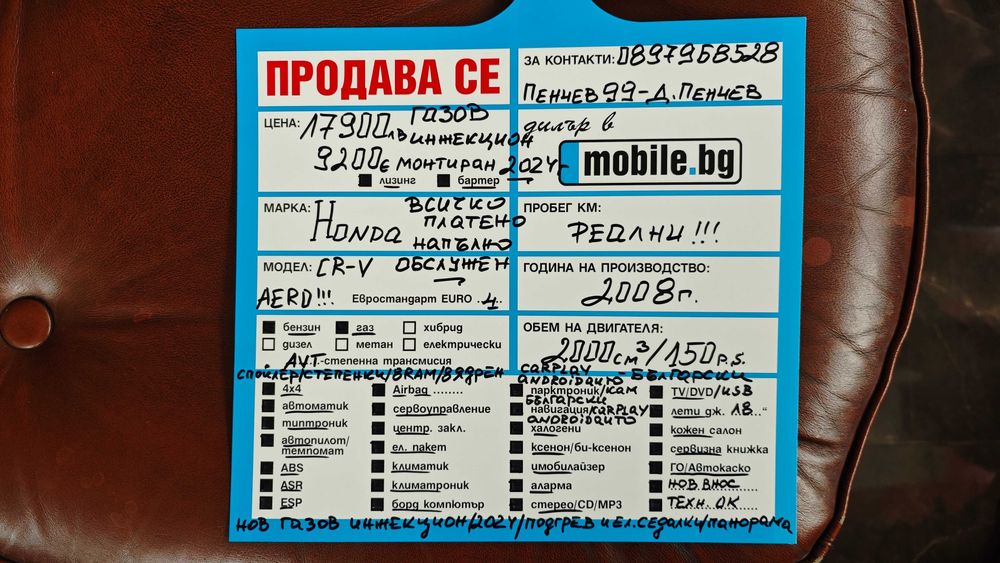 ПРОДАВА СЕ
ЗА КОНТАКТИ: 0897968528
ПЕНЧЕВ 99-Д. ПЕНЧЕВ
ЦЕНА: 17900лв ГАЗОВ
ИНЖЕКЦИОН
9200€ МОНТИРАН 2024-
лизинг бартер
дилър в
mobile.bg
МАРКА: HONDA ВСИЧКО
ПЛАТЕНО
НАПЪЛНО
ПРОБЕГ КМ:
РЕАЛНИ!!!
МОДЕЛ: CR-V ОБСЛУЖЕН
AERO!!! Евростандарт EURO .4.
ГОДИНА НА ПРОИЗВОДСТВО:
2008г.
бензин газ хибрид
дизел метан електрически
АУТ.-степенна трансмисия
ОБЕМ НА ДВИГАТЕЛЯ:
2000см³/150P.S.
СПОЙЛЕР/СТЕПЕНКИ/BRAM/ВЯДРЕН
CARPLAY
ANDROIDAUTO-БЪЛГАРСКИ
4x4
автоматик
типтроник
автопилот/
темпомат
ABS
ASR
ESP
Airbag ........
сервоуправление
центр. закл.
ел. пакет
климатик
климатроник
борд компютър
парктроник/КАМ
БЪЛГАРСКИ
навигация/CARPLAY
ANDROIDAUTO
халогени
ксенон/би-ксенон
имобилайзер
аларма
стерео/CD/MP3
TV/DVD/USB
лети дж. 18..“
кожен салон
сервизна книжка
ГО/Автокаско
НОВ ВНОС
ТЕХН. ОК
НОВ ГАЗОВ ИНЖЕКЦИОН/2024/ПОДГРЕВ И ЕЛ.СЕДАЛКИ/ПАНОРАМА